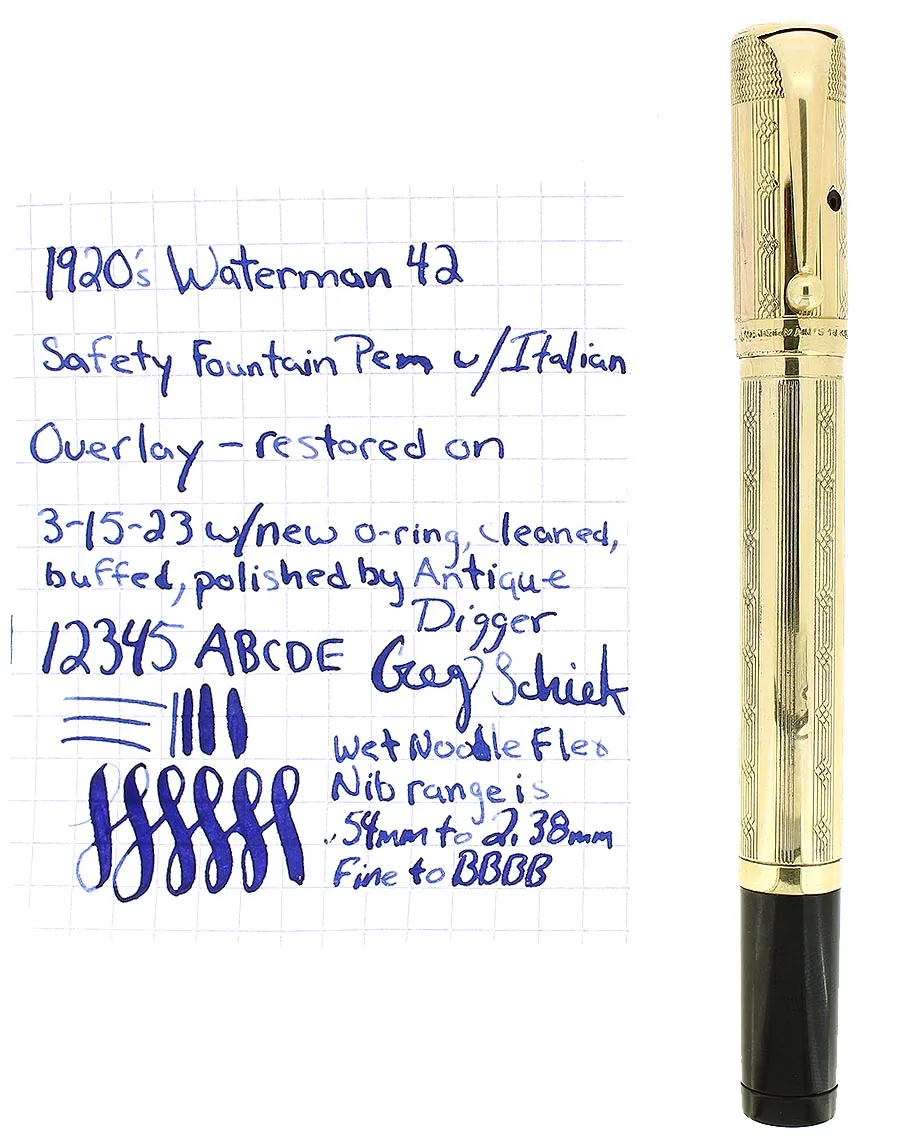 1920's Waterman 42
Safety Fountain Pen w/Italian
Overlay - restored on
3-15-23 w/new o-ring, cleaned,
buffed, polished by Antique
Digger
12345 ABCDE
Greg Schiek
Wet Noodle Flex
Nib range is
.54mm to 2.38mm
Fine to BBBB